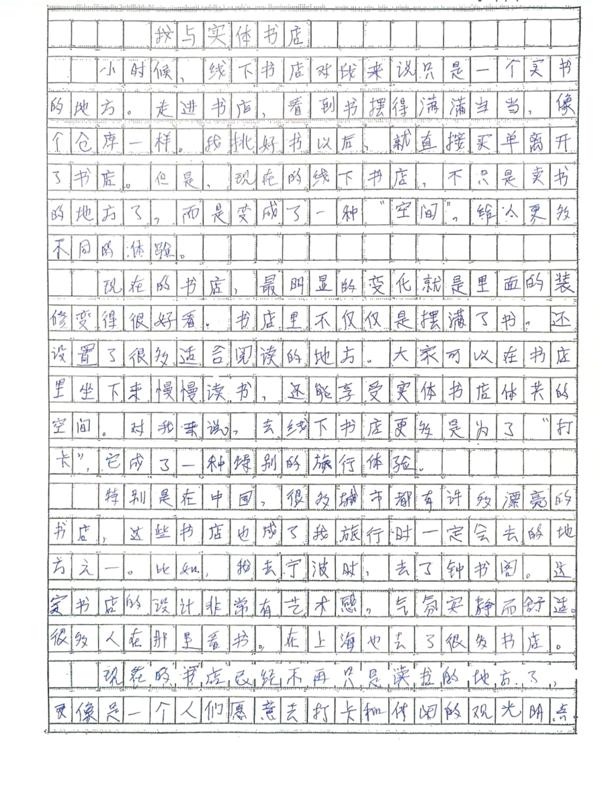 我与实体书店
小时候，线下书店对我来说只是一个买书
的地方。走进书店，看到书摆得满满当当，像
个仓库一样。我挑好书以后，就直接买单离开
了书店。但是，现在的线下书店，不只是卖书
的地方了，而是变成了一种“空间”，给人更多
不同的体验。
现在的书店，最明显的变化就是里面的装
修变得很好看。书店里不仅仅是摆满了书。还
设置了很多适合阅读的地方。大家可以在书店
里坐下来慢慢读书，还能享受实体书店体共的
空间。对我来说，去线下书店更多是为了“打
卡”，它成了一种特别的旅行体验。
特别是在中国，很多城市都有许多漂亮的
书店，这些书店也成了我旅行时一定会去的地
方之一。比如，我去宁波时，去了钟书阁。这
家书店的设计非常有艺术感，气氛安静而舒适。
很多人在那里看书。在上海也去了很多书店。
现在的书店已经不再只是读书的地方了，
更像是一个人们愿意去打卡和休闲的观光景点